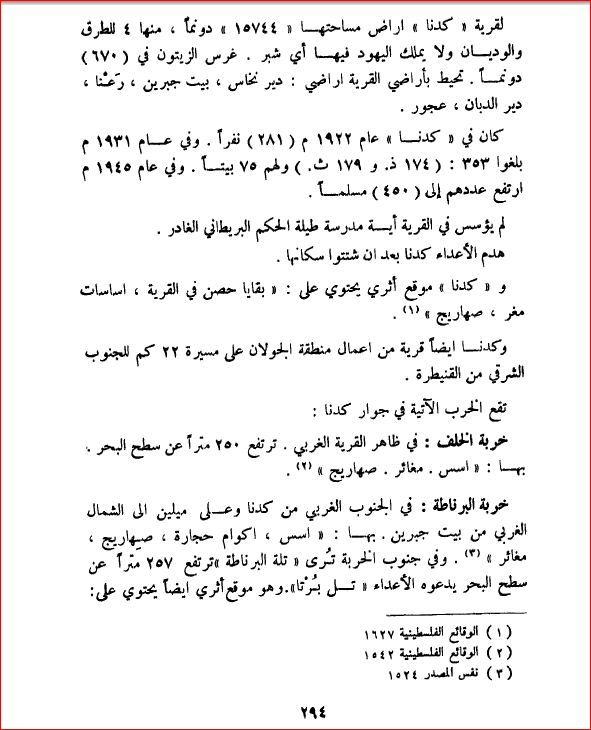 لقرية « كدنا » اراض مساحتهـا « ١٥٧٤٤ » دونماً ، منها ٤ للطرق
والوديـان ولا يملك اليهود فيهـا أي شبر . غرس الزيتون في ( ٦٧٠ )
دونمـاً . تحيط بأراضي القرية اراضي : دير نخاس ، بيت جبرين ، رَعْنا ،
دير الدبان ، عجور .
كان في « كدنـا » عام ١٩٢٢ م ( ٢٨١ ) نفراً . وفي عـام ١٩٣١ م
بلغوا ٣٥٣ : ( ١٧٤ ذ. و ١٧٩ ث. ) ولهم ٧٥ بيتـاً . وفي عام ١٩٤٥ م
ارتفع عددهم إلى ( ٤٥٠ ) مسلمـاً .
لم يؤسس في القرية أيـة مدرسة طيلة الحكم البريطاني الغادر .
هدم الأعداء كدنا بعد ان شتتوا سكانها .
و « كدنا » موقع أثري يحتوي على : « بقايا حصن في القرية ، اساسات
مغر ، صهاريج » (١) .
وكدنـا ايضاً قرية من اعمال منطقة الجولان على مسيرة ٢٢ كم للجنوب
الشرقي من القنيطرة .
تقع الخرب الآتية في جوار كدنا :
خربة الخلف : في ظاهر القرية الغربي . ترتفع ٢٥٠ متراً عن سطح البحر .
بهـا : « اسس . مغائر . صهاريج » (٢) .
خربة البرناطة : في الجنوب الغربي من كدنا وعـلى ميلين الى الشمال
الغربي من بيت جبرين . بهـا : « اسس ، اكوام حجارة ، صهاريج ،
مغائر » (٣) . وفي جنوب الخربة تُرى « تلة البرناطة »ترتفع ٢٥٧ متراً عن
سطح البحر يدعوه الأعداء « تـل بُرْتا».وهو موقع أثري ايضاً يحتوي على:
( ١ ) الوقائع الفلسطينية ١٦٢٧
( ٢ ) الوقائع الفلسطينية ١٥٤٢
( ٣ ) نفس المصدر ١٥٢٤
٢٩٤